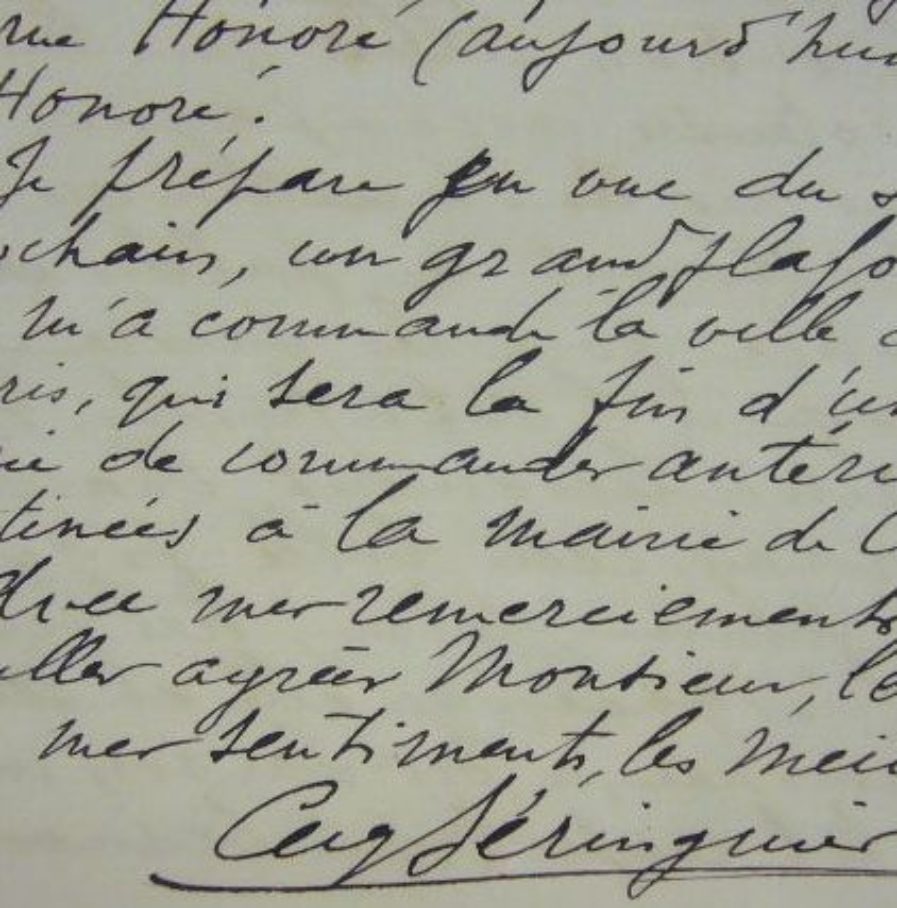 rue Honoré (aujourd'hui
Honoré.
Je prépare en vue du s
chain, un grand plafo
m'a commandé la ville d
ris, qui sera la fin d'un
rie de commandes antéri
tinées à la mairie de
mes remerciements
agréer Monsieur, l'e
mes sentiments, les meil
Aug Séringuier